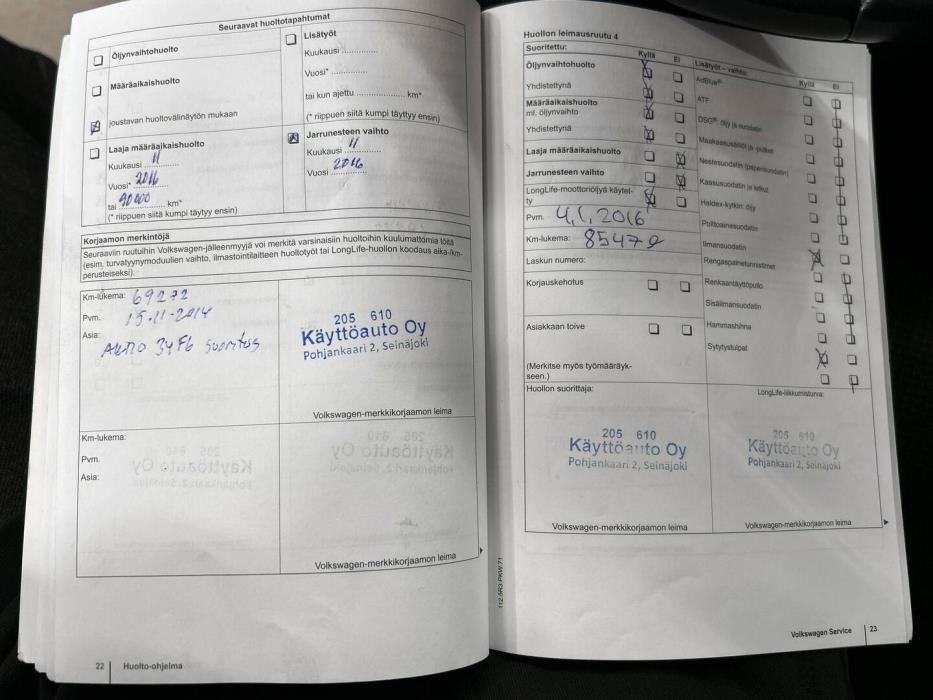 Seuraavat huoltotapahtumat
Öljynvaihtohuolto
Määräaikaishuolto
joustavan huoltovälinäytön mukaan
Laaja määräaikaishuolto
Kuukausi 11
Vuosi* 2016
tai 90000 km*
(* riippuen siitä kumpi täytyy ensin)
Lisätyöt
Kuukausi
Vuosi*
tai kun ajettu km*
(* riippuen siitä kumpi täyttyy ensin)
Jarrunesteen vaihto
Kuukausi 11
Vuosi 2016
Korjaamon merkintöjä
Seuraaviin ruutuihin Volkswagen-jälleenmyyjä voi merkitä varsinaisiin huoltoihin kuulumattomia töitä
(esim, turvatyynymoduulien vaihto, ilmastointilaitteen huoltotyöt tai LongLife-huollon koodaus aika-/km-
perusteiseksi).
Km-lukema: 69272
Pvm. 15.11-2014
Asia:
34F6 suoritus
205 610
Käyttöauto Oy
Pohjankaari 2, Seinäjoki
Volkswagen-merkkikorjaamon leima
Km-lukema:
Pvm.
Asia:
Volkswagen-merkkikorjaamon leima
22 Huolto-ohjelma
112.5R3.PKW.71
Huollon leimausruutu 4
Suoritettu: Kyllä Ei
Öljynvaihtohuolto
Yhdistettynä
Määräaikaishuolto
ml. öljynvaihto
Yhdistettynä
Laaja määräaikaishuolto
Jarrunesteen vaihto
LongLife-moottoriöljyä käytet-
ty
Pvm. 4.1.2016
Km-lukema: 85472
Laskun numero:
Korjauskehotus
Asiakkaan toive
(Merkitse myös työmääräyk-
seen.)
Lisätyöt – vaihto: Kyllä Ei
AdBlue®
ATF
DSG®: öljy ja suodatin
Maakaasusäiliöt ja -putket
Nestesuodatin (paperisuodatin)
Kaasusuodatin ja letkut
Haldex-kytkin: öljy
Polttoainesuodatin
Ilmansuodatin
Rengaspainetunnistimet
Renkaantäyttöpullo
Sisäilmansuodatin
Hammashihna
Sytytystulpat
Huollon suorittaja:
205 610
Käyttöauto Oy
Pohjankaari 2, Seinäjoki
Volkswagen-merkkikorjaamon leima
LongLife-liikkumisturva:
205 610
Käyttöauto Oy
Pohjankaari 2, Seinäjoki
Volkswagen-merkkikorjaamon leima
Volkswagen Service 23